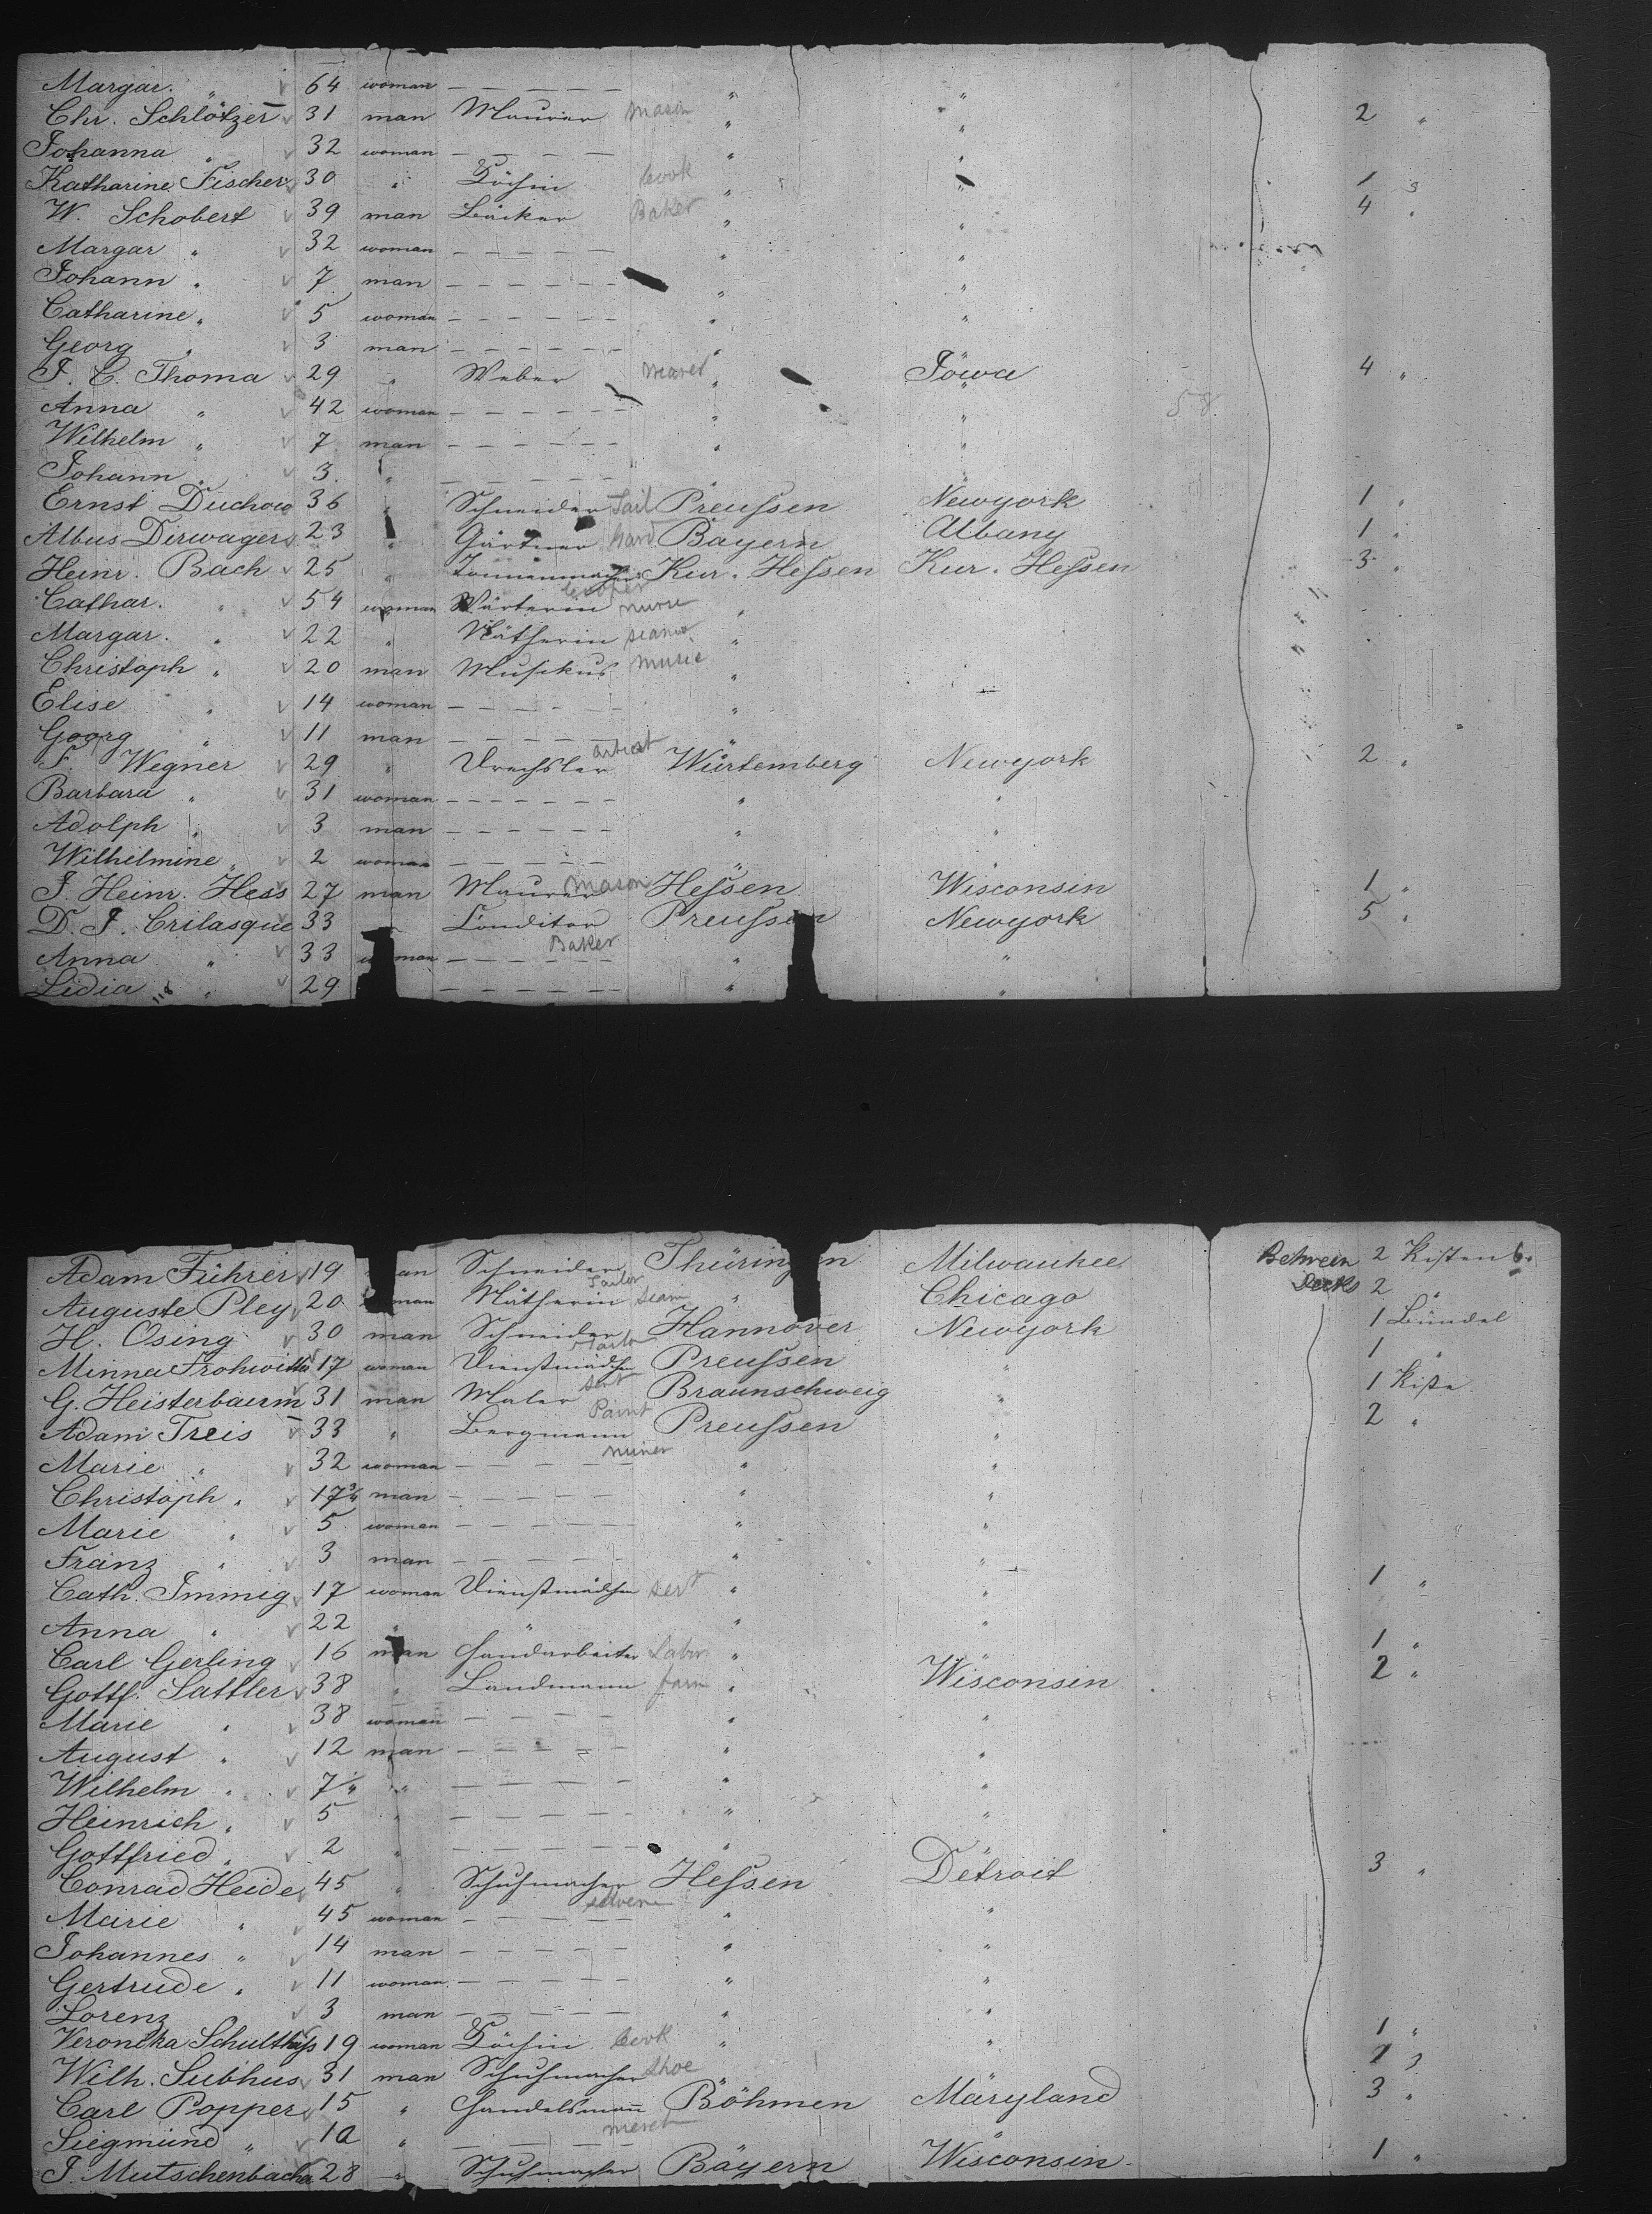 Margar. " 64 woman — — — — — " "
Chr. Schlötzer 31 man Maurer mason " " 2 "
Johanna " 32 woman — — — — — " "
Katharine Fischer 30 " Köchin Cook " " 1
W. Schobert 39 man Bäcker Baker " " 4 "
Margar " 32 woman — — — — — " "
Johann " 7 man — — — — — — " "
Catharine " 5 woman — — — — — — " "
Georg " 3 man — — — — — — "
J. C. Thoma 29 " Weber weaver " Jowa 4 "
Anna " 42 woman — — — — — — " " 58
Wilhelm " 7 man — — — — — — " "
Johann " 3 " — — — — — — " "
Ernst Duchow 36 " Schneider Tail Preußen Newyork 1 "
Albus Dirwager 23 " Gärtner Gard Bayern Albany 1 "
Heinr. Bach 25 " Tonnenmacher Kur. Heßen Kur. Heßen 3 "
Cooper
Cathar. " 54 woman Wärterin nurse "
Margar. " 22 " Nätherin seamr "
Christoph " 20 man Musikus music "
Elise " 14 woman — — — — — — "
Georg " 11 man — — — — — — "
F. Wegner 29 " Drechsler Würtemberg Newyork 2 "
Barbara " 31 woman — — — — — — " "
Adolph " 3 man — — — — — — " "
Wilhelmine " 2 woman — — — — — " "
J. Heinr. Hess 27 man Maurer mason Heßen Wisconsin 1 "
D. J. Crilasque 33 Conditor Preußen Newyork 5 "
Baker
Anna " 33 woman — — — — — — " "
Lidia " 29 — — — — — — " "
118
Adam Führer 19 man Schneider Thüringen Milwaukee Between 2 Kisten 6.
Tailor
Auguste Pley 20 woman Nätherin seam " Chicago Decks 2 "
H. Osing 30 man Schneider Hannover Newyork 1 Bündel
Tailor
Minna Frohwitter 17 woman Dienstmädchen Preußen " 1 "
sert
G. Heisterbaum 31 man Maler Braunschweig " 1 Kiste
Paint
Adam Treis 33 " Bergmann Preußen " 2 "
miner
Marie " 32 woman — — — — — " "
Christoph " man — — — — — " "
Marie " 5 woman — — — — — — " "
Franz " 3 man — — — — — — " "
Cath. Immig 17 woman Dienstmädchen sert " " 1 "
Anna " 22 " " " "
Carl Gerling 16 man Handarbeiter Labor " " 1 "
Gottf. Sattler 38 " Landmann farm " Wisconsin 2 "
Marie " 38 woman — — — — — " "
August " 12 man — — — — — " "
Wilhelm " 7 " — — — — — — " "
Heinrich " 5 " — — — — — — " "
Gottfried " 2 " — — — — — — " "
Conrad Heide 45 " Schuhmacher Heßen Detroit 3 "
Marie " 45 woman — — — — — " "
Johannes " 14 man — — — — — " "
Gertrude " 11 woman — — — — — " "
Lorenz " 3 man — — — — — — " "
Veronika Schultheiss 19 woman Köchin Cook " " 1 "
Wilh. Subhus 31 man Schuhmacher Shoe
Carl Popper 15 " Handelsmann Böhmen Maryland 3 "
merct
Siegmund " "
J. Mutschenbacher 28 " Schuhmacher Bayern Wisconsin 1 "